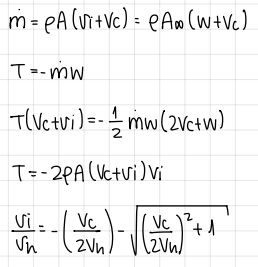 ṁ = ρA(vi+Vc) = ρA∞(w+Vc)
T = -ṁw
T(Vc+vi) = -1/2 ṁw(2Vc+w)
T = -2ρA(Vc+vi)vi
vi/vh = -(Vc/2Vh) - √((Vc/2Vh)²+1)